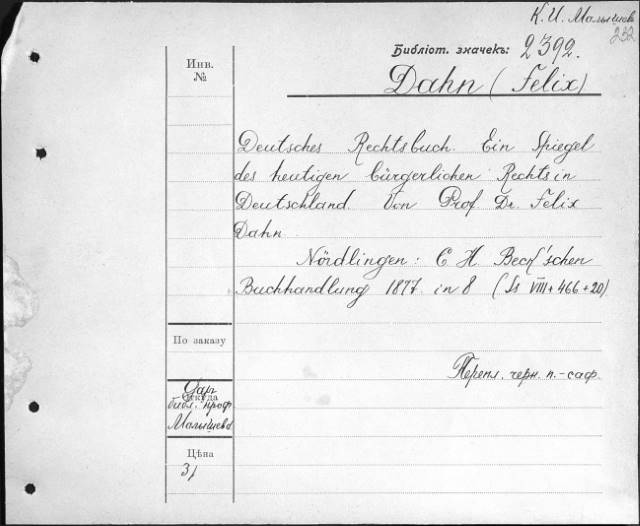 К. И. Малышев
232
Библіот. значекъ: 2392.
Инв.
№
Dahn (Felix)
Deutsches Rechtsbuch. Ein Spiegel
des heutigen bürgerlichen Rechts in
Deutschland. Von Prof. Dr. Felix
Dahn
Nördlingen: C H. Beck'schen
Buchhandlung 1877. in 8 (Ss VIII + 466 + 20)
По заказу
Перепл. черн. п.-саф.
Дар
Откуда
библ. проф
Малышева
Цѣна
3